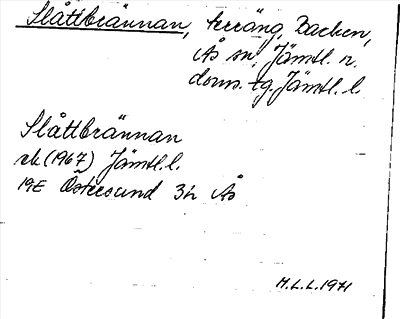 Slåttbrännan, terräng, Backen,
Ås sn, Jämtl. n.
doms. tg. Jämtl. l.
Slåttbrännan
ek (1967) Jämtl. l.
19E Östersund 3h Ås
H.L.L. 1971